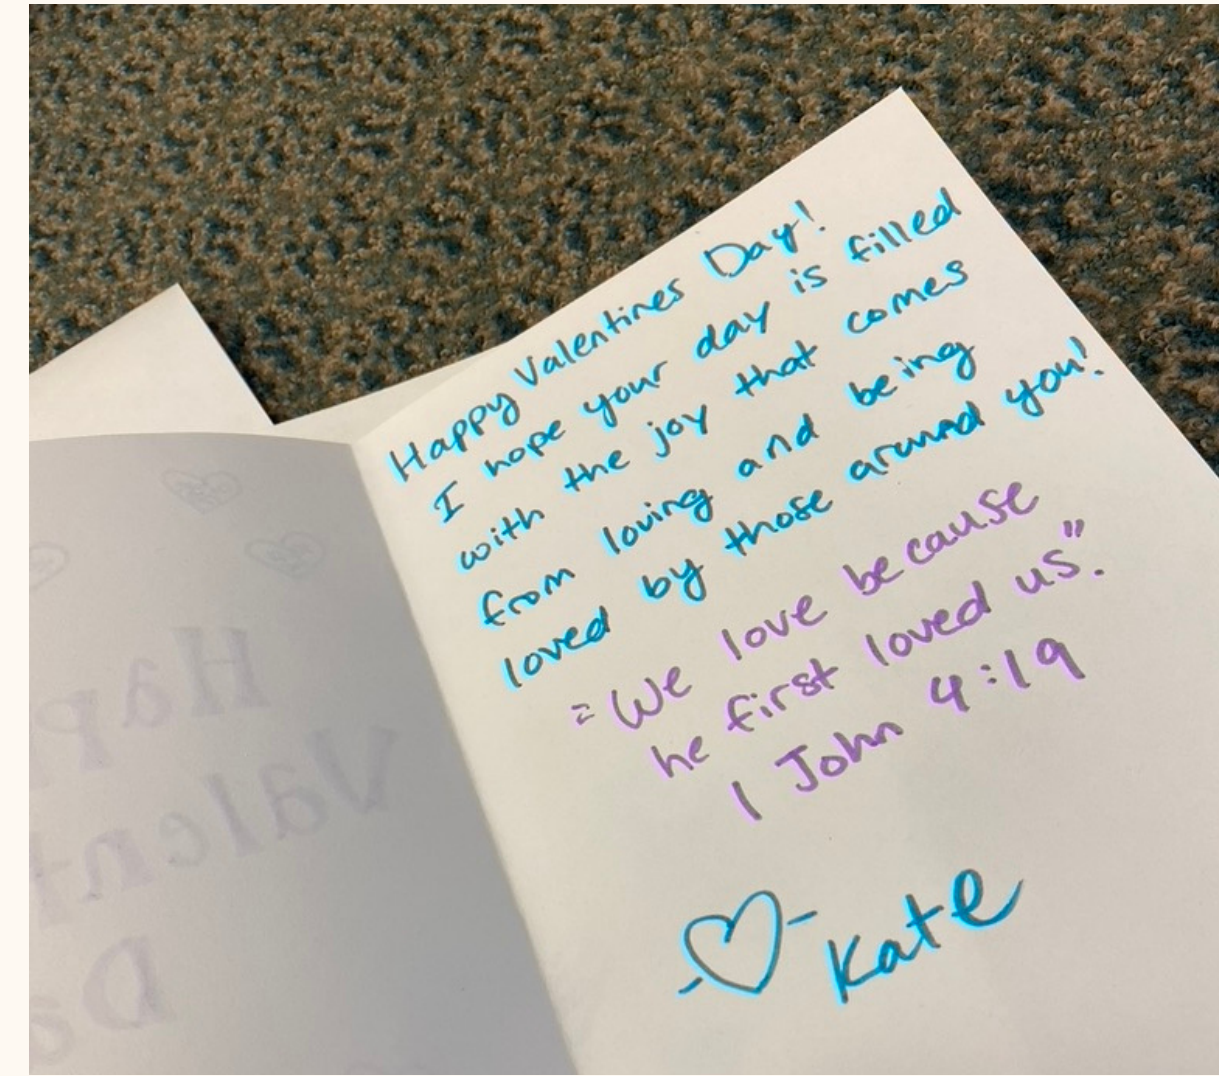 Happy Valentines Day!
I hope your day is filled
with the joy that comes
from loving and being
loved by those around you!
"We love because
he first loved us".
1 John 4:19
Kate